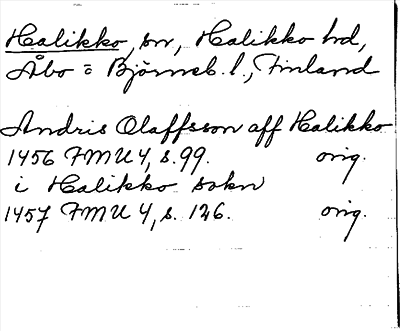 Halikko, sn, Halikko hd,
Åbo o Björneb. l., Finland
Andris Olaffsson aff Halikko
1456 FMU 4, s. 99. orig.
i Halikko sokn
1457 FMU 4, s. 126. orig.